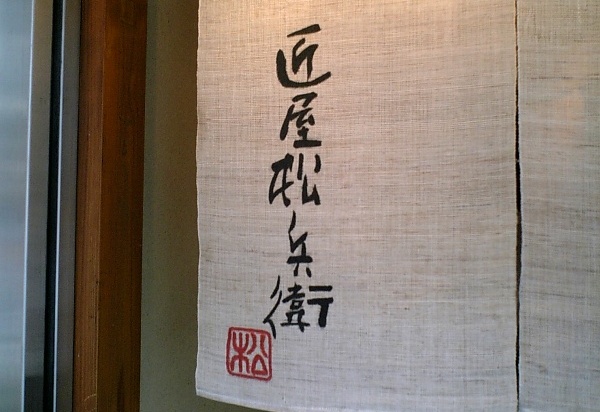 匠屋松兵衛
松